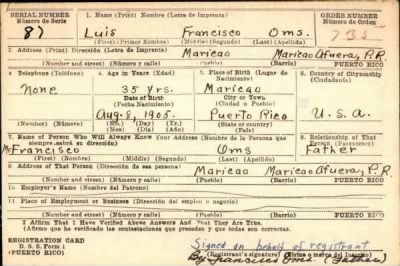 SERIAL NUMBER 1. Name (Print) Nombre (Letra de Imprenta) ORDER NUMBER
Número de Serie Número de Orden
87 Luis Francisco Oms. 735
(First) (Nombre) (Middle) (Segundo) (Last) (Apellido)
2. Address (Print) Dirección (Letra de Imprenta)
Maricao Maricao Afuera, P.R.
(Number and street) (Número y calle) (Pueblo) (Barrio) PUERTO RICO
3. Telephone (Teléfono) 4. Age in Years (Edad) 5. Place of Birth (Lugar de Nacimiento) 6. Country of Citizenship (Ciudadanía)
None 35 yrs. Maricao
Date of Birth City or Town
(Fecha Nacimiento) (Ciudad o Pueblo)
Aug. 8, 1905. Puerto Rico U.S.A.
(Number) (Número) (Mo.) (Day) (Yr.) (State or country)
(Mes) (Día) (Año) (Estado o país)
7. Name of Person Who Will Always Know Your Address (Nombre de la Persona que siempre sabrá su dirección) 8. Relationship of That Person (Parentesco)
Mr. Francisco Oms Father
(First) (Nombre) (Middle) (Segundo) (Last) (Apellido)
9. Address of That Person (Dirección de esa persona)
Maricao Maricao Afuera, P.R.
(Number and street) (Número y calle) (Pueblo) (Barrio) PUERTO RICO
10. Employer's Name (Nombre del Patrono)
11. Place of Employment or Business (Dirección del empleo o negocio)
(Number and street) (Número y calle) (Pueblo) (Barrio) PUERTO RICO
I Affirm That I Have Verified Above Answers And That They Are True.
Afirmo que he verificado las contestaciones que preceden y que todas son correctas.
REGISTRATION CARD Signed on behalf of registrant
D. S. S. Form 1 By Francisco Oms (Father)
(PUERTO RICO) (Registrant's signature) (Firma o marca del Inscrito)